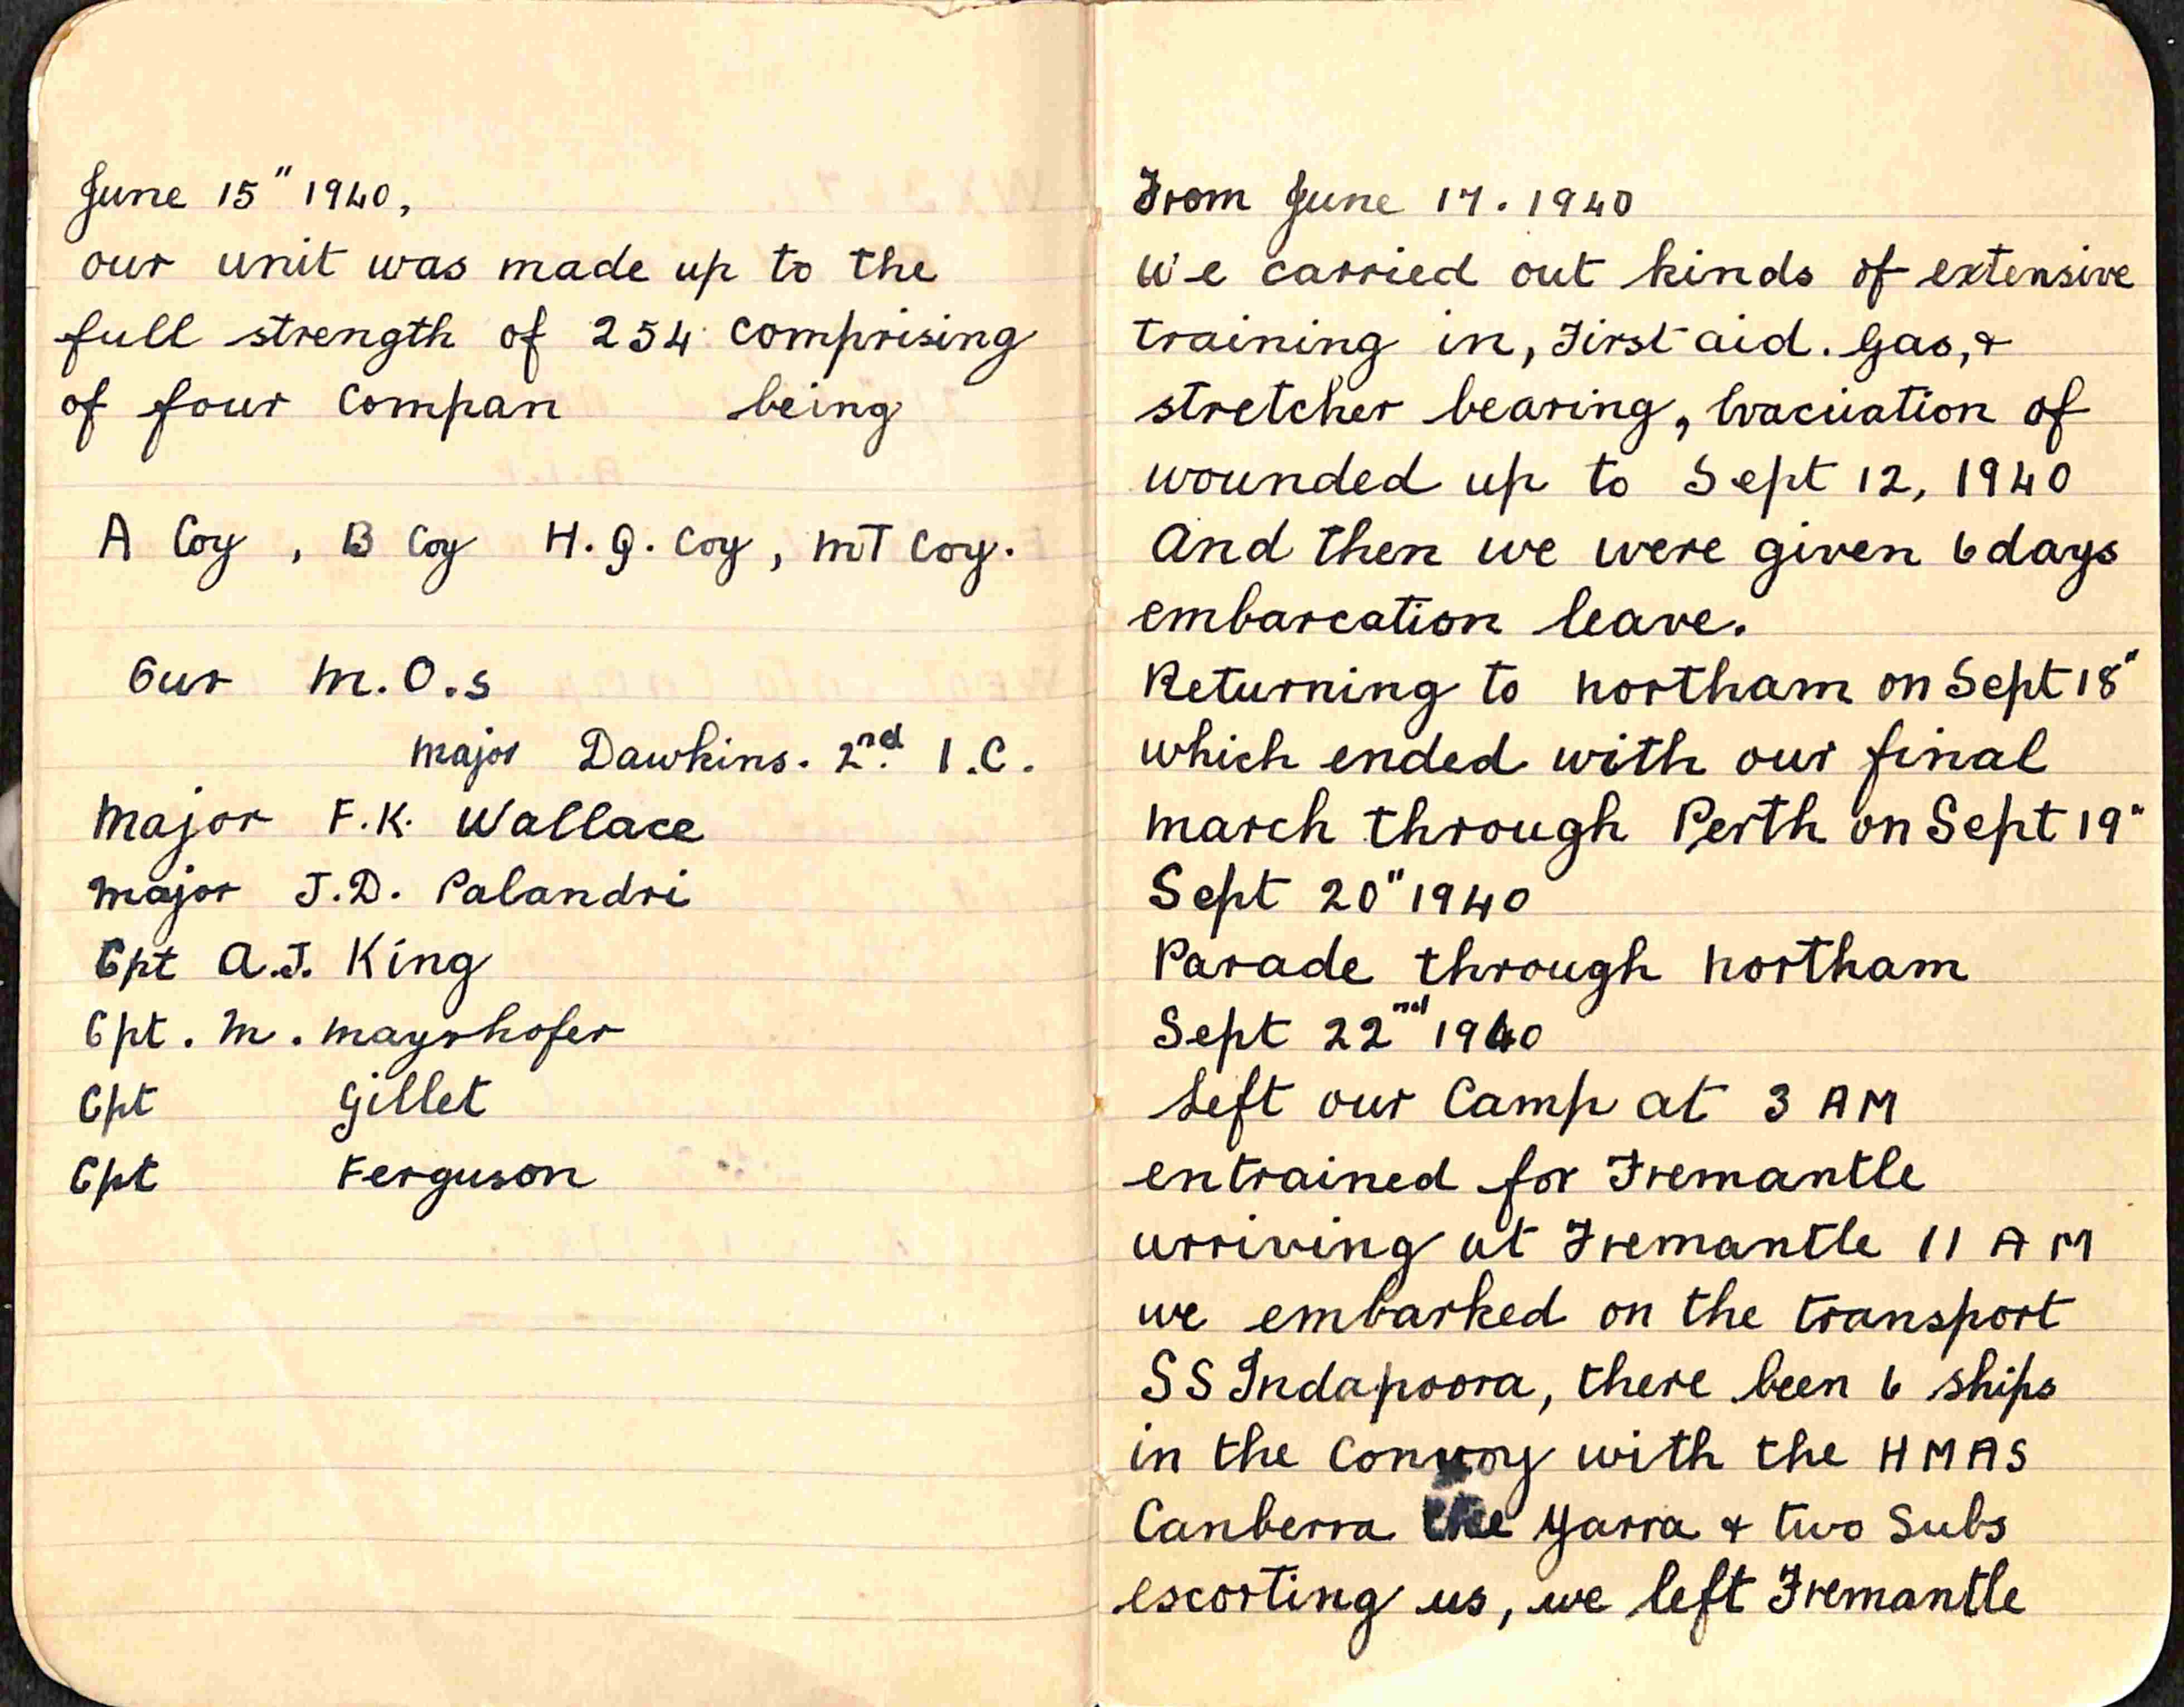 June 15" 1940,
our unit was made up to the
full strength of 254 comprising
of four Compan being
A Coy , B Coy H.Q. Coy, MT Coy.
Our M.O.s
Major Dawkins. 2nd I.C.
Major F.K. Wallace
Major J.D. Palandri
Cpt A.J. King
Cpt. M. Mayrhofer
Cpt Gillet
Cpt Ferguson
From June 17. 1940
We carried out kinds of extensive
training in, First aid. Gas, &
stretcher bearing, Evacuation of
wounded up to Sept 12, 1940
And then we were given 6 days
embarcation leave.
Returning to Northam on Sept 18"
which ended with our final
march through Perth on Sept 19"
Sept 20" 1940
Parade through Northam
Sept 22nd 1940
Left our Camp at 3 AM
entrained for Fremantle
arriving at Fremantle 11 AM
we embarked on the transport
SS Indapoora, there been 6 ships
in the Convoy with the HMAS
Canberra the Yarra & two Subs
escorting us, we left Fremantle